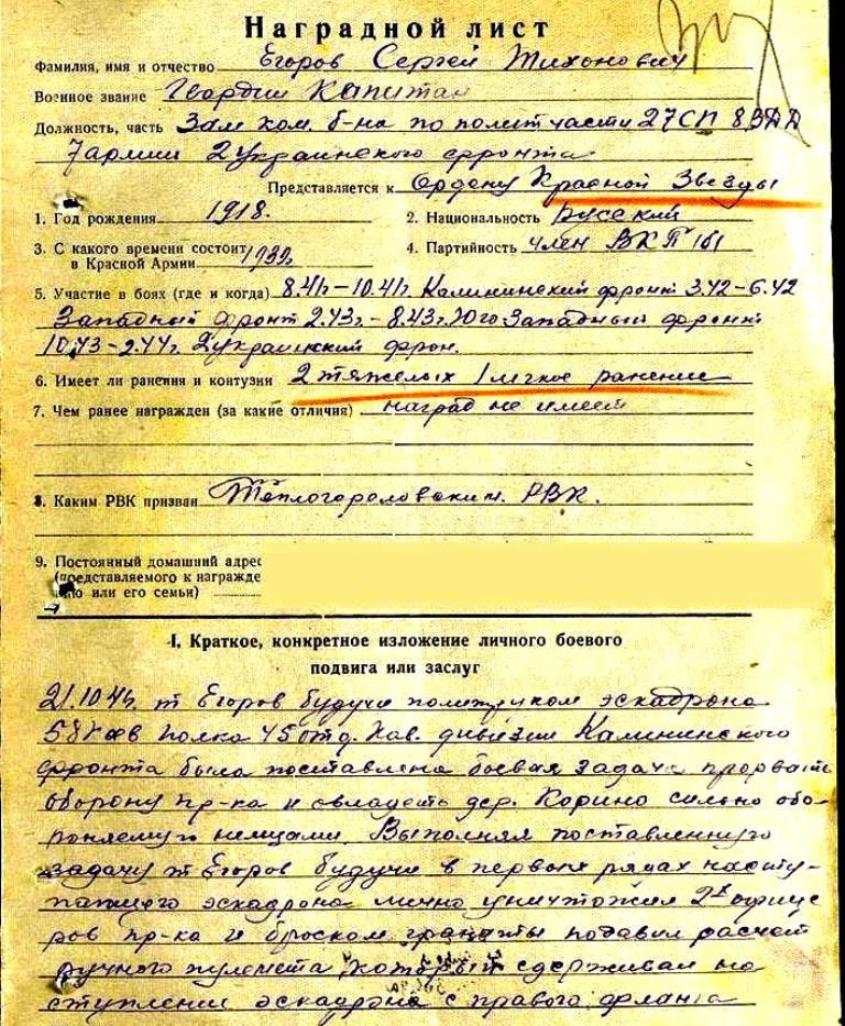 Наградной лист
Фамилия, имя и отчество Егоров Сергей Тихонович
Военное звание Гвардии Капитан
Должность, часть Зам ком. б-на по политчасти 27СП 8ВДД
7армии 2Украинского фронта
Представляется к Ордену Красной Звезды
1. Год рождения 1918.
2. Национальность русский
3. С какого времени состоит в Красной Армии 1939г
4. Партийность член ВКП(б)
5. Участие в боях (где и когда) 8.41г–10.41г. Калининский фронт 3.42–6.42
Западный фронт 2.43г.–8.43г. Юго Западный фронт
10.43–2.44г. 2украинский фрон.
6. Имеет ли ранения и контузии 2 тяжелых 1 легкое ранение
7. Чем ранее награжден (за какие отличия) наград не имеет
8. Каким РВК призван РВК.
9. Постоянный домашний адрес
(представляемого к награжде
нию или его семьи)
I. Краткое, конкретное изложение личного боевого
подвига или заслуг
21.10.41г. т Егоров будучи политруком эскадрона
58 Кав полка 45 отд. Кав. дивизии Калининского
фронта была поставлена боевая задача прорвать
оборону пр-ка и овладеть дер. Корино сильно обо-
роняемую немцами. Выполняя поставленную
задачу т Егоров будучи в первых рядах насту-
пающего эскадрона лично уничтожил 2х офице
ров пр-ка и броском гранаты подавил расчет
ручного пулемета который сдерживал на
ступление эскадрона с правого фланга